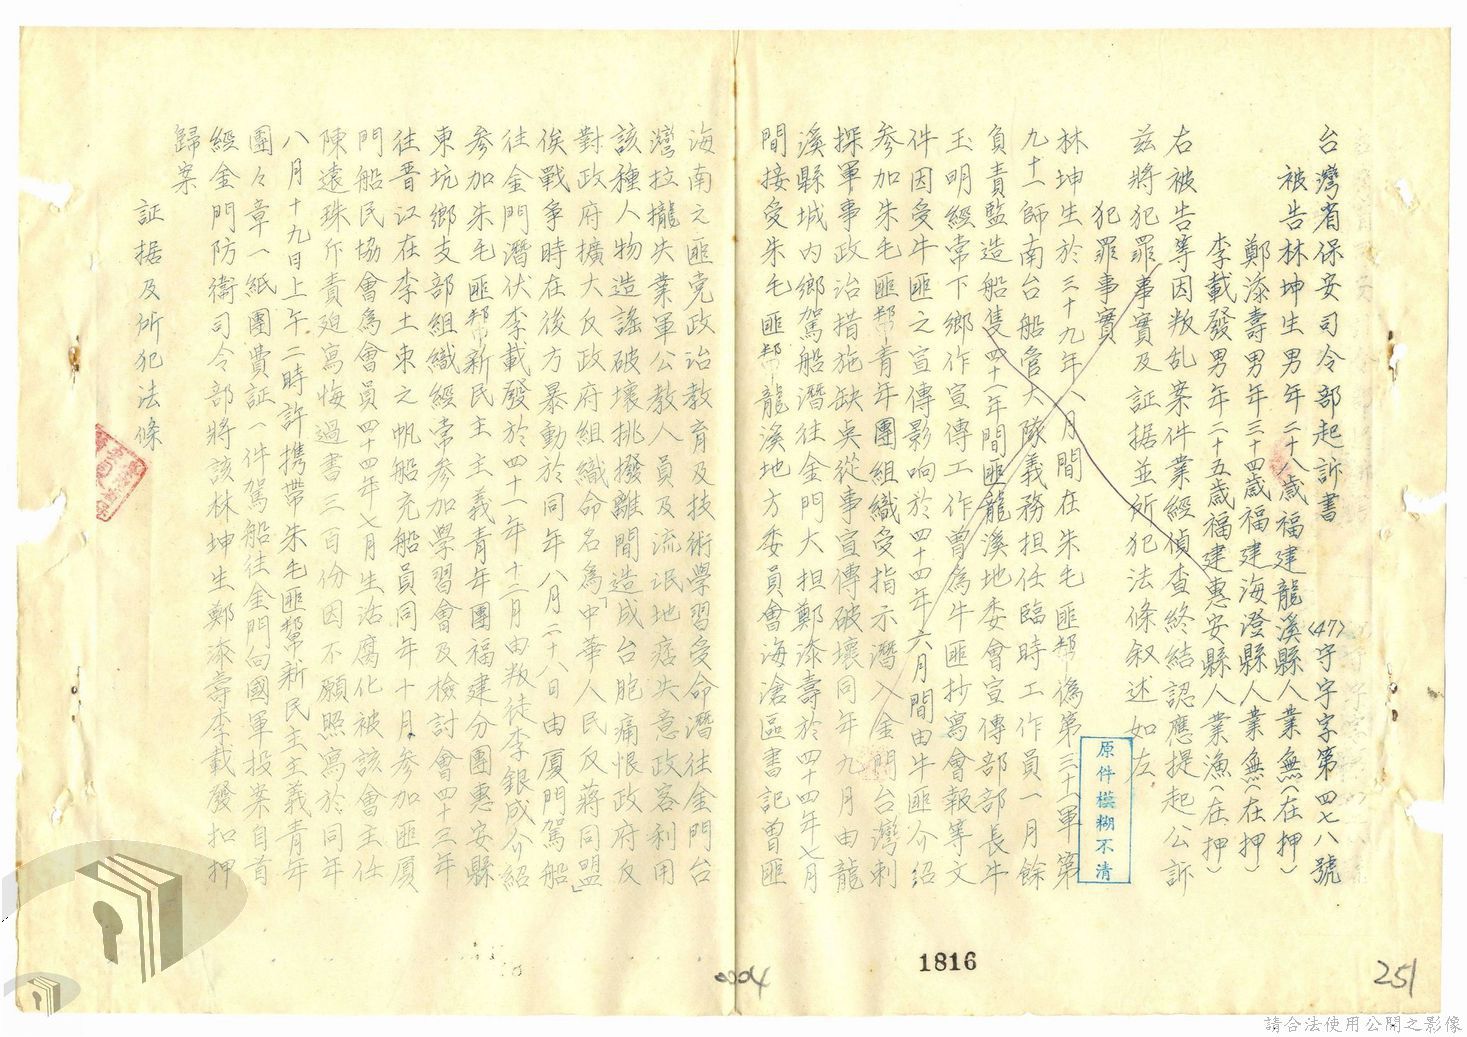 台灣省保安司令部起訴書
(47)字字字第四七八號
被告林坤生男年二十八歲福建龍溪縣人業無(在押)
鄭添壽男年三十四歲福建海澄縣人業無(在押)
李載發男年二十五歲福建惠安縣人業漁(在押)
右被告等因叛乱案件業經偵查終結認應提起公訴
茲將犯罪事實及証据並所犯法條叙述如左
犯罪事實
林坤生於三十九年八月間在朱毛匪幫偽第三十一軍第
九十一師南台船管大隊義務担任臨時工作員一月餘
負責監造船隻四十一年間匪龍溪地委會宣傳部部長牛
玉明經常下鄉作宣傳工作曾為牛匪抄寫會報等文
件因受牛匪之宣傳影响於四十四年六月間由牛匪介紹
參加朱毛匪幫青年團組織受指示潛入金門台灣刺
探軍事政治措施缺點從事宣傳破壞同年九月由龍
溪縣城內鄉駕船潛往金門大担鄭添壽於四十四年七月
間接受朱毛匪幫龍溪地方委員會海滄區書記曾匪
海南之匪党政治教育及技術學習受命潛往金門台
灣拉攏失業軍公教人員及流氓地痞失意政客利用
該種人物造謠破壞挑撥離間造成台胞痛恨政府反
對政府擴大反政府組織命名為「中華人民反蔣同盟」
俟戰爭時在後方暴動於同年八月二十八日由厦門駕船
往金門潛伏李載發於四十一年十二月由叛徒李銀成介紹
參加朱毛匪幫新民主主義青年團福建分團惠安縣
東坑鄉支部組織經常參加學習會及檢討會四十三年
往晋江在李土束之帆船充船員同年十月參加匪厦
門船民協會為會員四十四年七月生活腐化被該會主任
陳遠珠斥責廹寫悔過書三百份因不願照寫於同年
八月十九日上午二時許携帶朱毛匪幫新民主主義青年
團々章一紙團費証一件駕船往金門向國軍投案自首
經金門防衛司令部將該林坤生鄭添壽李載發扣押
歸案
証据及所犯法條
原件模糊不清
1816
0004
251
請合法使用公開之影像